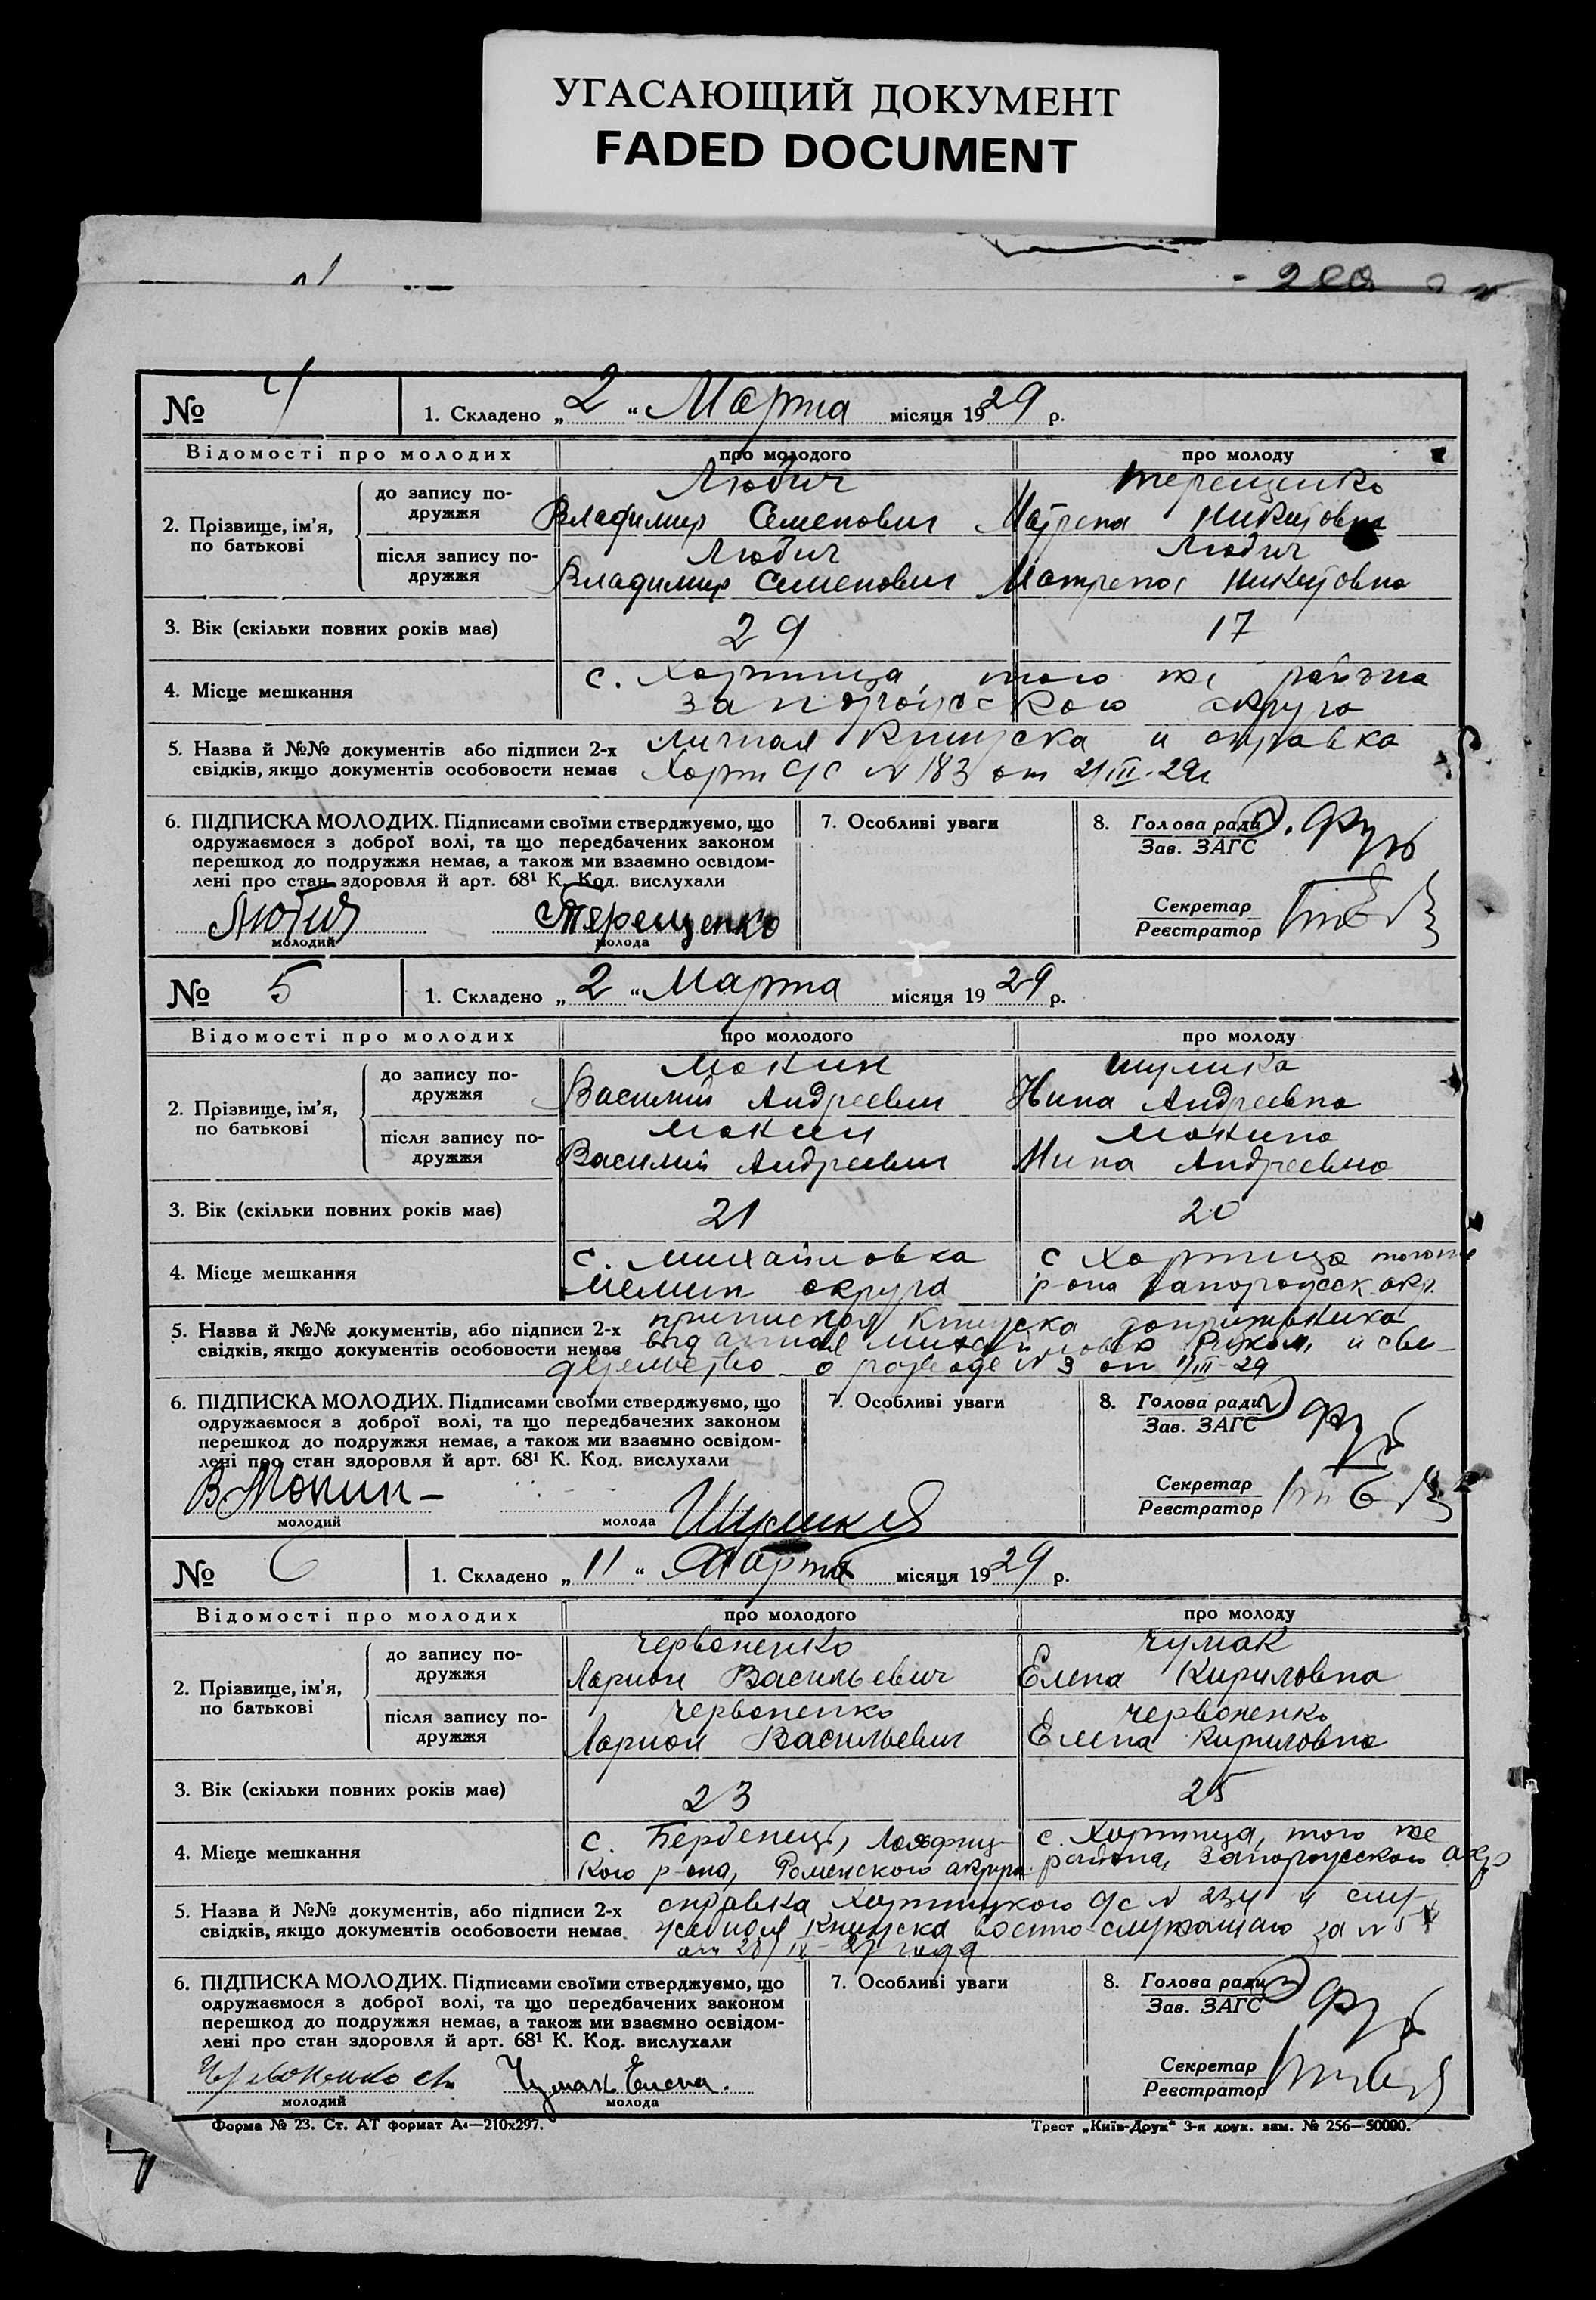 УГАСАЮЩИЙ ДОКУМЕНТ
FADED DOCUMENT
№ 4 1. Складено „ 2 “ Марта місяця 1929 р.
Відомості про молодих про молодого про молоду
2. Прізвище, ім’я, по батькові
до запису подружжя
Любич Терещенко
Владимир Семенович Матрена Никитовна
після запису подружжя
Любич Любич
Владимир Семенович Матрена Никитовна
3. Вік (скільки повних років має) 29 17
4. Місце мешкання с. Хортица, того же района
запорожского округа
5. Назва й №№ документів або підписи 2-х личная книжска и справка
свідків, якщо документів особовости немає Хорт с/с N 183 от 2/III-29г
6. ПІДПИСКА МОЛОДИХ. Підписами своїми стверджуємо, що 7. Особливі уваги 8. Голова ради
одружаємося з доброї волі, та що передбачених законом Зав. ЗАГС
перешкод до подружжя немає, а також ми взаємно освідом-
лені про стан здоровля й арт. 68¹ К. Код. вислухали
Секретар
Реєстратор
Любич Терещенко
молодий молода
№ 5 1. Складено „ 2 “ Марта місяця 1929 р.
Відомості про молодих про молодого про молоду
2. Прізвище, ім’я, по батькові
до запису подружжя
Мокин Шулика
Василий Андреевич Нина Андреевна
після запису подружжя
Мокин Мокина
Василий Андреевич Нина Андреевна
3. Вік (скільки повних років має) 21 20
4. Місце мешкання с. Михайловка с Хортица того же
Мелит округа р-она Запорожск окр.
5. Назва й №№ документів, або підписи 2-х приписная книжска допризывника
свідків, якщо документів особовости немає выданная Михайловск Риком, и сви-
детельство о разводе N 3 от 1/III-29
6. ПІДПИСКА МОЛОДИХ. Підписами своїми стверджуємо, що 7. Особливі уваги 8. Голова ради
одружаємося з доброї волі, та що передбачених законом Зав. ЗАГС
перешкод до подружжя немає, а також ми взаємно освідом-
лені про стан здоровля й арт. 68¹ К. Код. вислухали
Секретар
Реєстратор
В Мокин Шулика
молодий молода
№ 6 1. Складено „ 11 “ Марта місяця 1929 р.
Відомості про молодих про молодого про молоду
2. Прізвище, ім’я, по батькові
до запису подружжя
Червоненко Чумак
Ларион Васильевич Елена Кириловна
після запису подружжя
Червоненко Червоненко
Ларион Васильевич Елена Кириловна
3. Вік (скільки повних років має) 23 25
4. Місце мешкання с. с. Хортица, того же
кого р-она, Роменского округа района, Запорожского окр
5. Назва й №№ документів, або підписи 2-х справка Хортицкого с/с N 234 и слу-
свідків, якщо документів особовости немає жебная книжска военно-служащаго за N
от 29 года
6. ПІДПИСКА МОЛОДИХ. Підписами своїми стверджуємо, що 7. Особливі уваги 8. Голова ради
одружаємося з доброї волі, та що передбачених законом Зав. ЗАГС
перешкод до подружжя немає, а також ми взаємно освідом-
лені про стан здоровля й арт. 68¹ К. Код. вислухали
Секретар
Реєстратор
Червоненко Чумак Елена.
молодий молода
Форма № 23. Ст. АТ формат А₄—210х297. Трест „Київ-Друк“ 3-я друк. зам. № 256—50000.